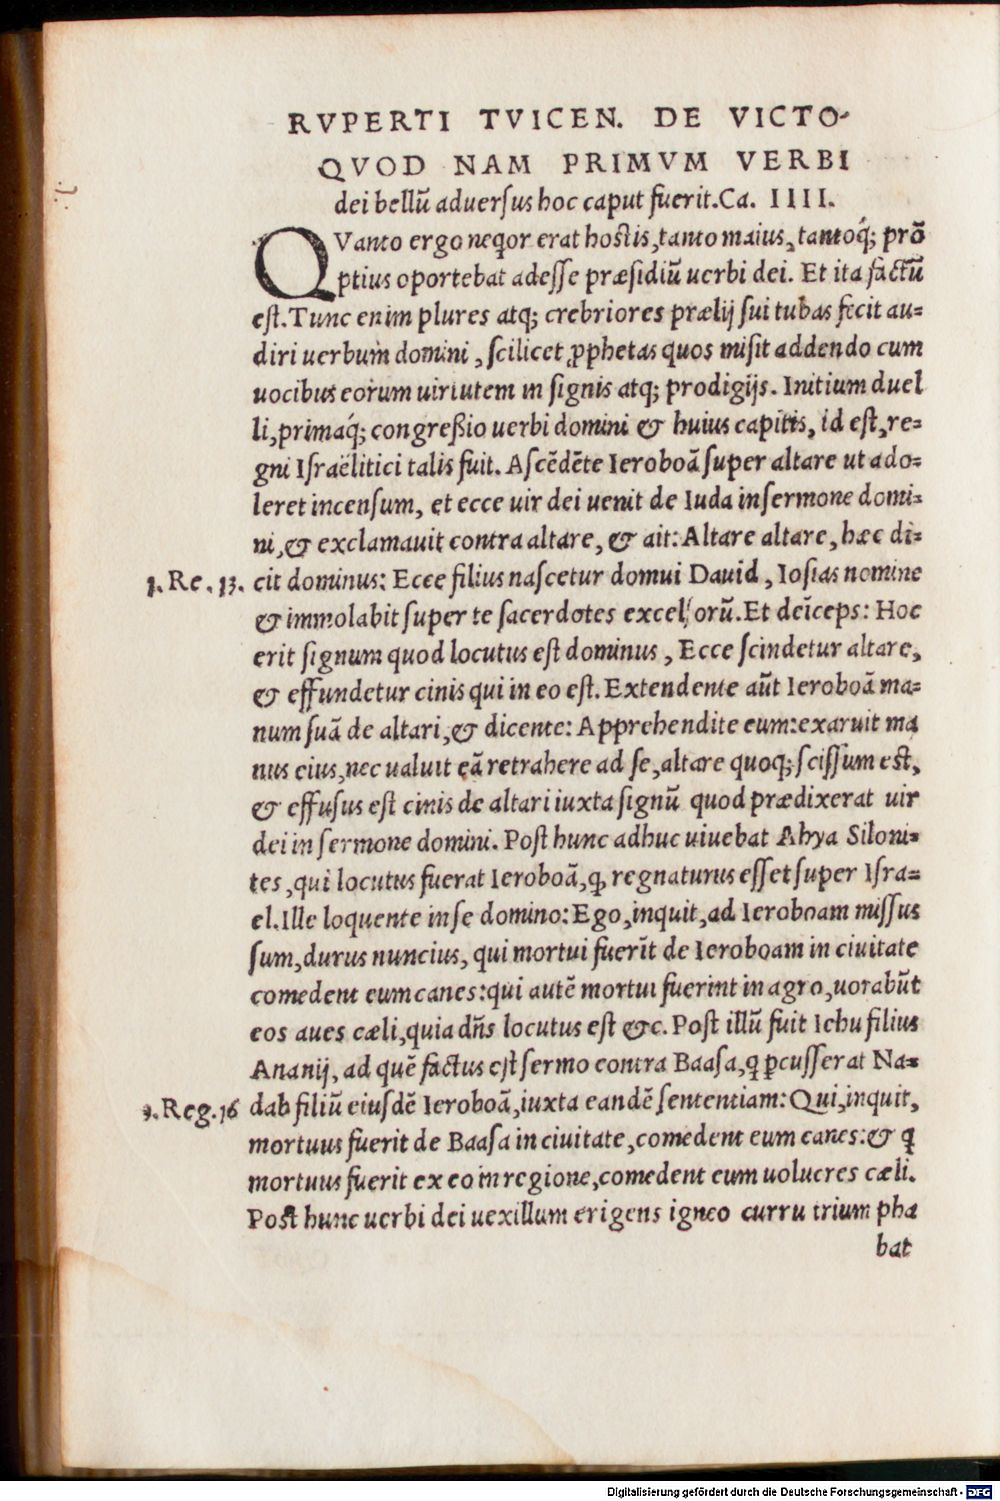 RVPERTI TVICEN. DE VICTO-
QVOD NAM PRIMVM VERBI
dei bellū aduersus hoc caput fuerit. Ca. IIII.
QVanto ergo neqor erat hostis, tanto maius, tantoq́; prō
ptius oportebat adesse præsidiū uerbi dei. Et ita factū
est. Tunc enim plures atq; crebriores prælij sui tubas fecit au=
diri uerbum domini, scilicet ꝓphetas quos misit addendo cum
uocibus eorum uirtutem in signis atq; prodigijs. Initium duel
li, primaq́; congreßio uerbi domini & huius capitis, id est, re=
gni Israëlitici talis fuit. Ascēdēte Ieroboā super altare ut ado=
leret incensum, et ecce uir dei uenit de Iuda in sermone domi=
ni, & exclamauit contra altare, & ait: Altare altare, hæc di=
3. Re. 13. cit dominus: Ecce filius nascetur domui Dauid, Iosias nomine
& immolabit super te sacerdotes excelsorū. Et deīceps: Hoc
erit signum quod locutus est dominus, Ecce scindetur altare,
& effundetur cinis qui in eo est. Extendente aūt Ieroboā ma=
num suā de altari, & dicente: Apprehendite eum: exaruit ma
nus eius, nec ualuit eā retrahere ad se, altare quoq; scissum est,
& effusus est cinis de altari iuxta signū quod prædixerat uir
dei in sermone domini. Post hunc adhuc uiuebat Ahya Siloni=
tes, qui locutus fuerat Ieroboā, ꝙ regnaturus esset super Isra=
el. Ille loquente in se domino: Ego, inquit, ad Ieroboam missus
sum, durus nuncius, qui mortui fuerīt de Ieroboam in ciuitate
comedent eum canes: qui autē mortui fuerint in agro, uorabūt
eos aues cæli, quia dñs locutus est &c. Post illū fuit Iehu filius
Ananij, ad quē factus est sermo contra Baasa, ꝗ ꝑcusserat Na=
3. Reg. 16 dab filiū eiusdē Ieroboā, iuxta eandē sententiam: Qui, inquit,
mortuus fuerit de Baasa in ciuitate, comedent eum canes: & ꝗ
mortuus fuerit ex eo in regione, comedent eum uolucres cæli.
Post hunc uerbi dei uexillum erigens igneo curru trium pha
bat
Digitalisierung gefördert durch die Deutsche Forschungsgemeinschaft - DFG